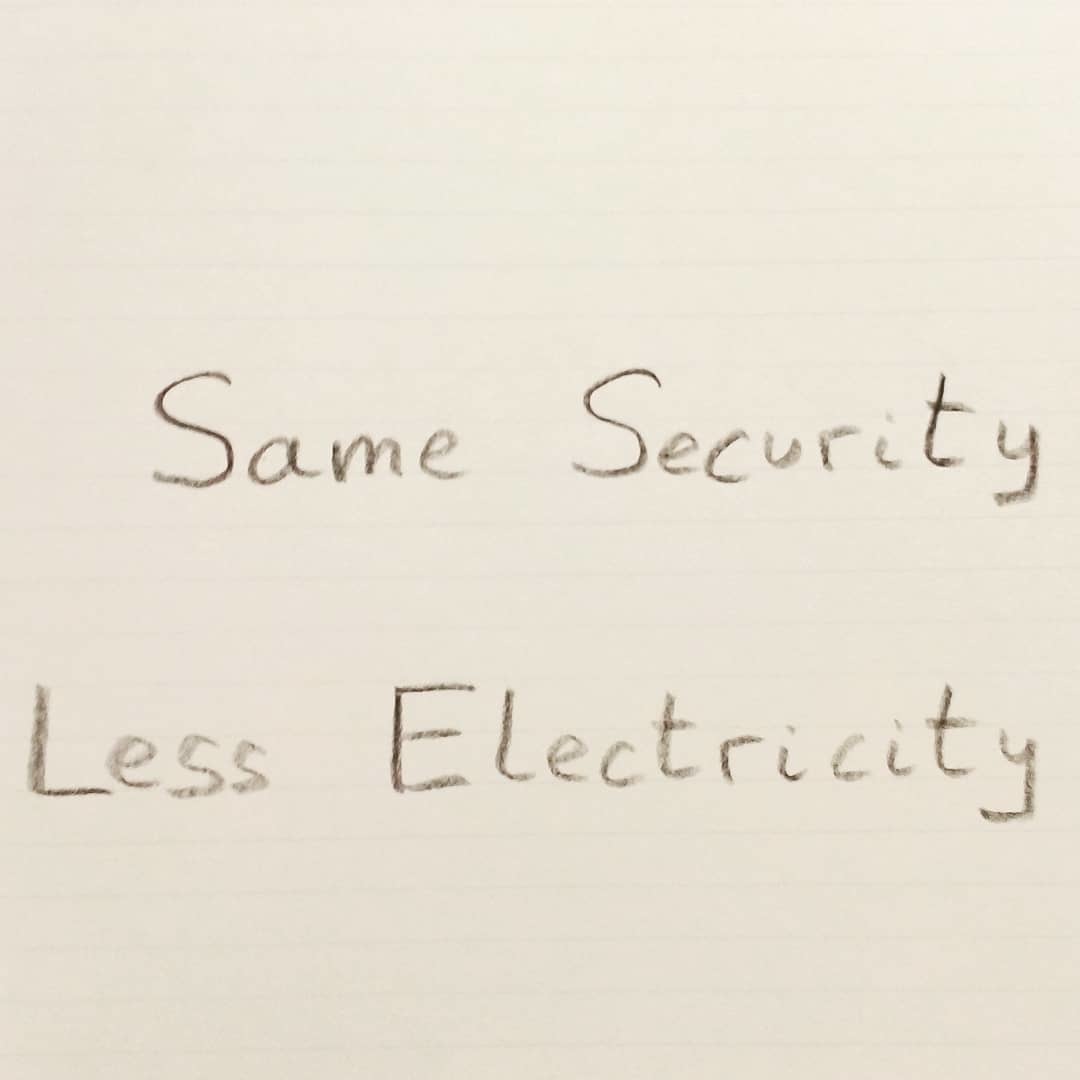 Same Security
Less Electricity